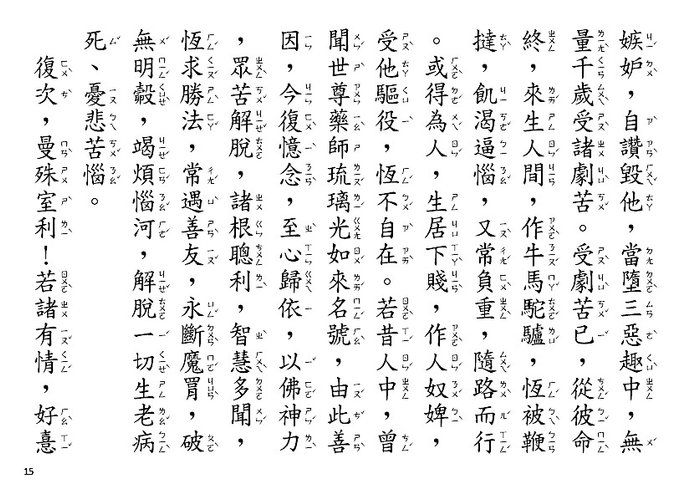 嫉妒，自讚毀他，當墮三惡趣中，無
量千歲受諸劇苦。受劇苦已，從彼命
終，來生人間，作牛馬駝驢，恆被鞭
撻，飢渴逼惱，又常負重，隨路而行
。或得為人，生居下賤，作人奴婢，
受他驅役，恆不自在。若昔人中，曾
聞世尊藥師琉璃光如來名號，由此善
因，今復憶念，至心歸依，以佛神力
，眾苦解脫，諸根聰利，智慧多聞，
恆求勝法，常遇善友，永斷魔罥，破
無明㲉，竭煩惱河，解脫一切生老病
死、憂悲苦惱。
復次，曼殊室利！若諸有情，好憙
15